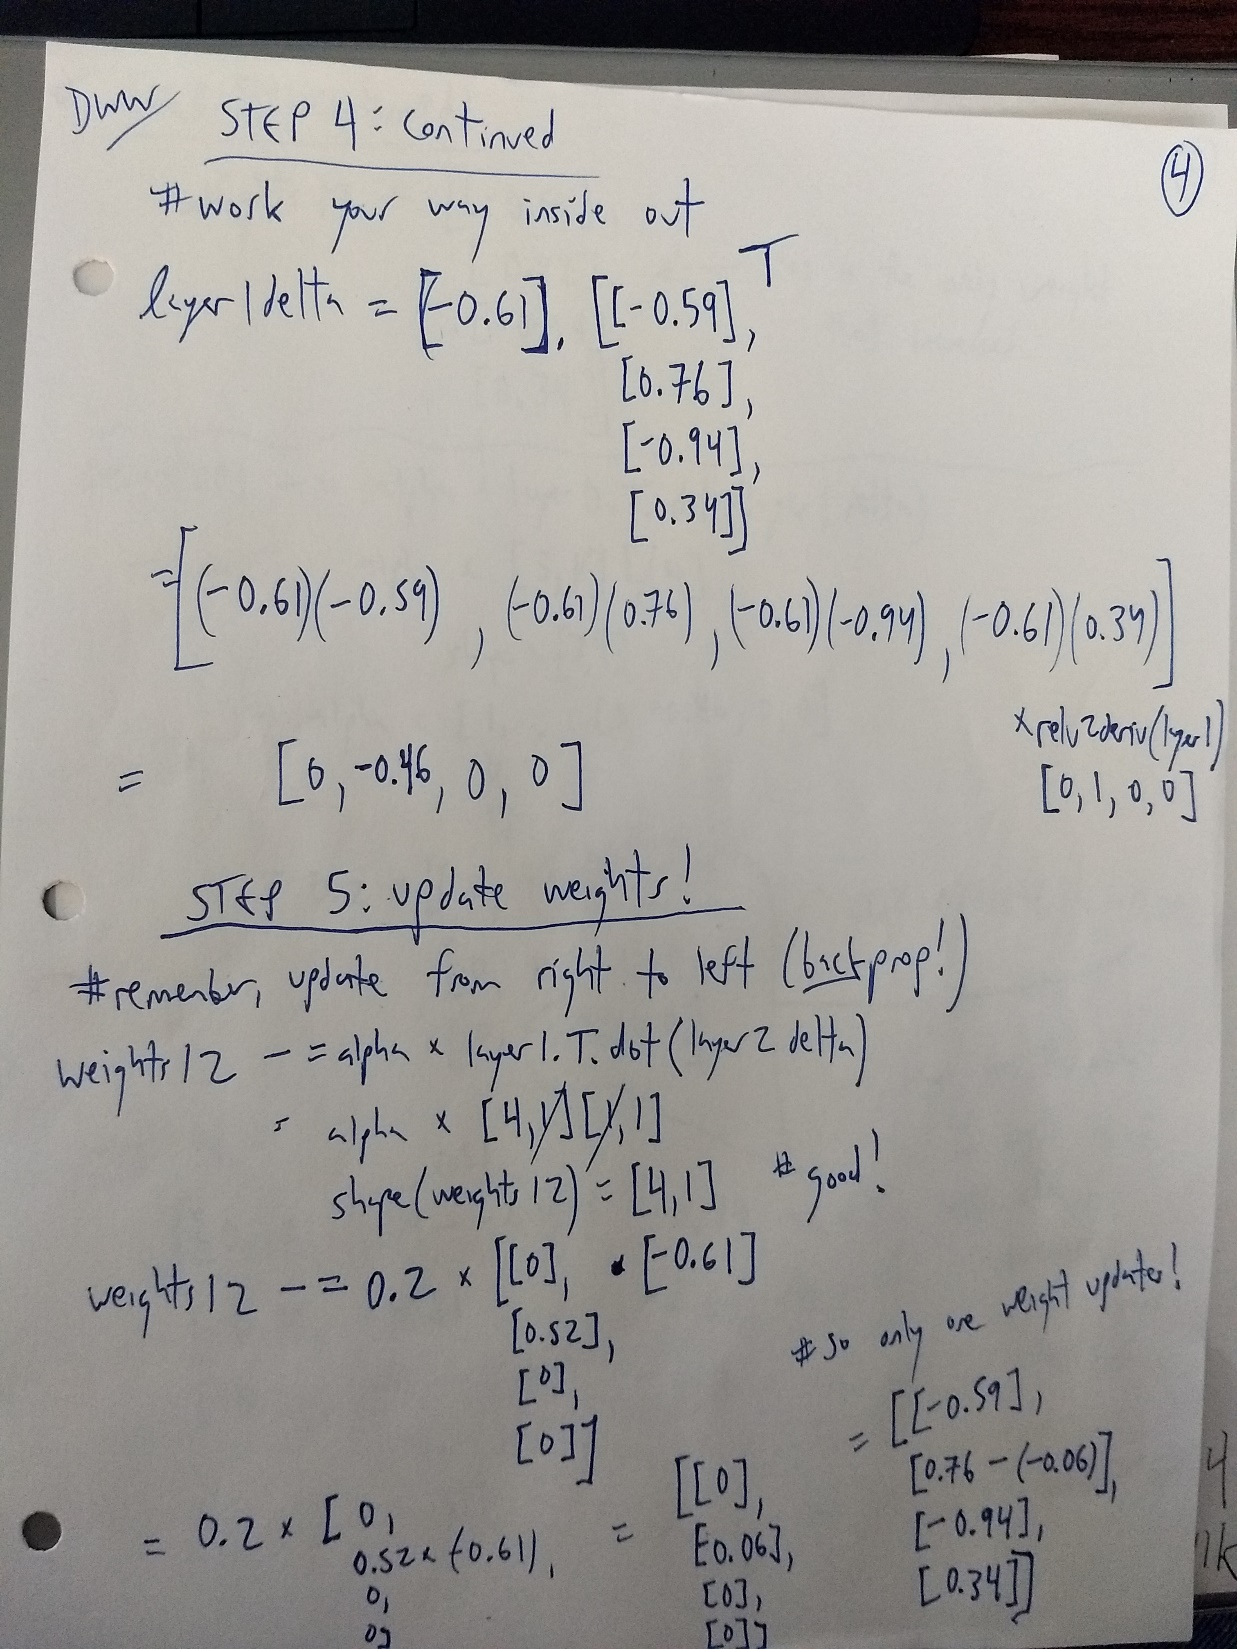 DWW STEP 4: Continued
4
#work your way inside out
layer1delta = [-0.61]. [[-0.59], T
[0.76],
[-0.94],
[0.34]]
=[(-0.61)(-0.59), (-0.61)(0.76), (-0.61)(-0.94), (-0.61)(0.34)]
x relu2deriv(layer1)
= [0, -0.46, 0, 0] [0, 1, 0, 0]
STEP 5: update weights!
#remember, update from right to left (backprop!)
weights12 -= alpha x layer1.T.dot(layer2delta)
= alpha x [4,1][1,1]
shape(weights12) = [4,1] # good!
weights12 -= 0.2 x [[0], • [-0.61]
[0.52],
[0],
[0]]
# so only one weight updates!
= [[-0.59],
[0.76-(-0.06)],
[-0.94],
[0.34]]
= 0.2 x [0,
0.52x(-0.61),
0,
0]
= [[0],
[-0.06],
[0],
[0]]
4